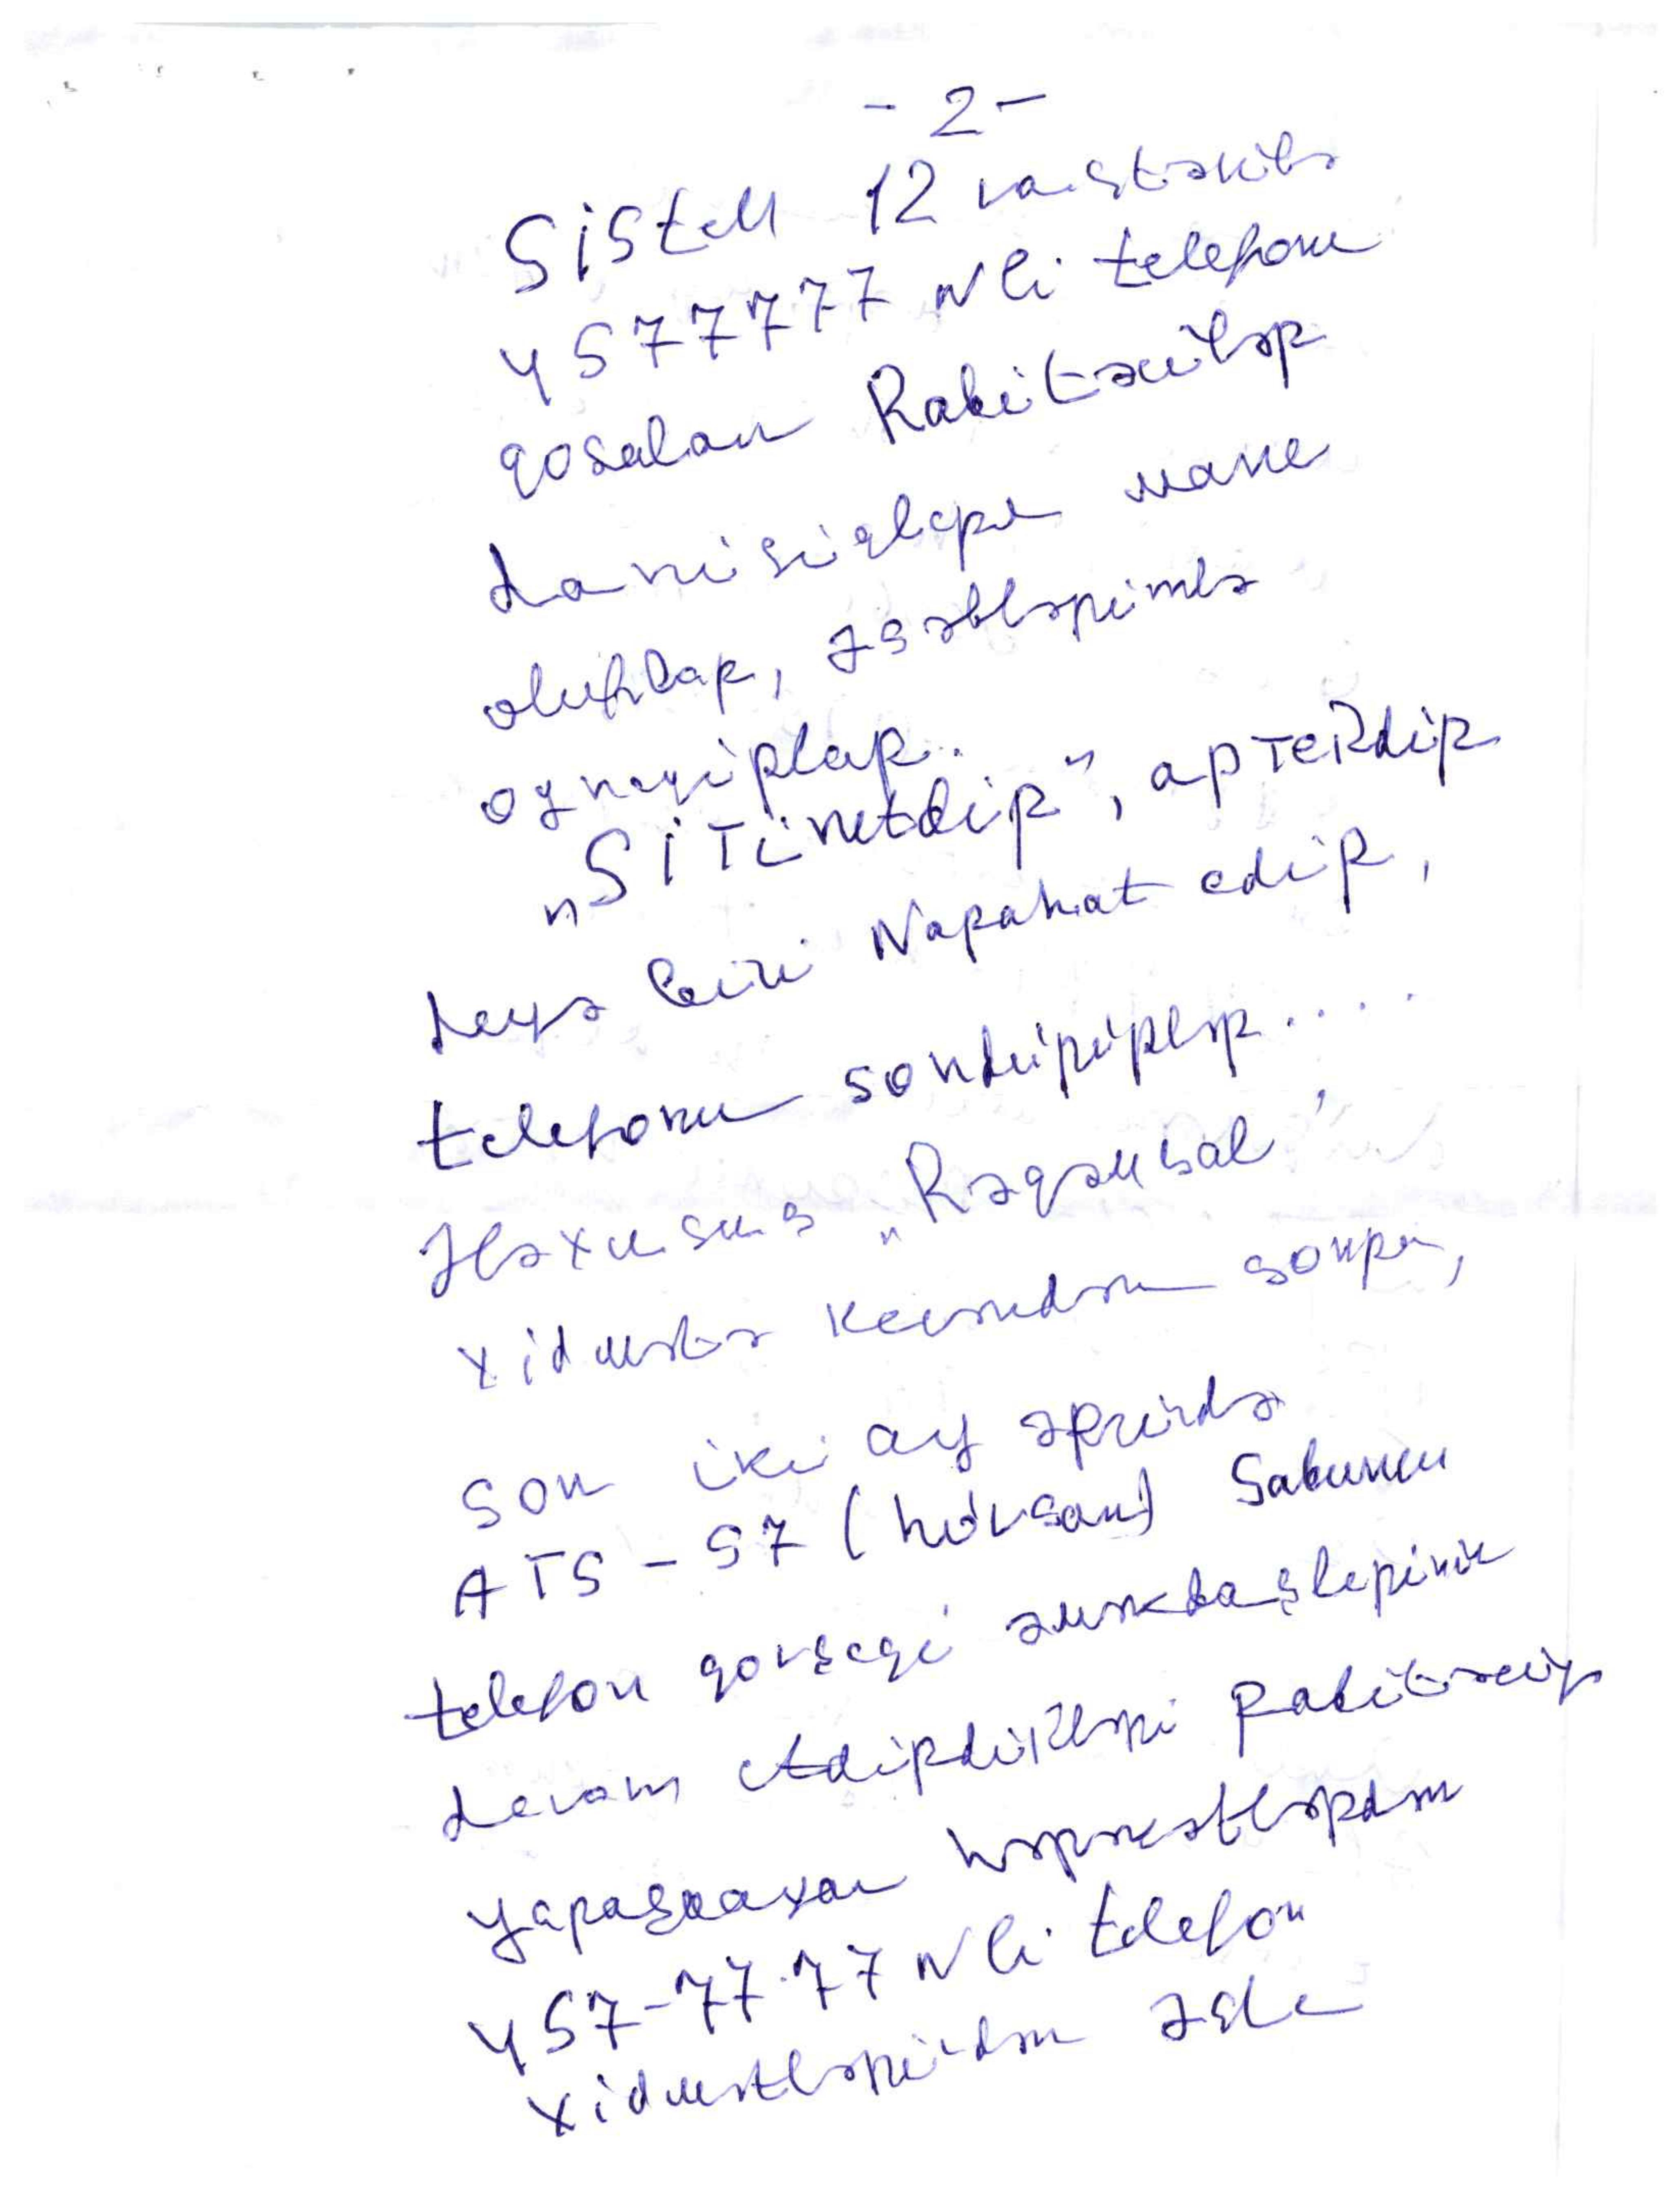 - 2 -
Sistem 12 vastəsilə
4577777 Nli telefonu
qosulan Rabitəcilər
danisiqlara mane
olurlar, əsəblərimlə
oynayirlar..
"SİTİnetdir", arTeRdir
deyə bizi Narahat edir,
telefonu sondürürlər....
Əlaxusus "Rəqəmsal"
xidmətə kecəndən sonra,
son iki ay ərzində
ATS-57 (hövsan) Sabuncu
telefon qovşaqi əməkdaşlarinin
davam etdirdikləri rabitəciyə
yaraşmayan hərəkətlərdən
457-77 77 Nli telefon
xidmətlərindən əsla